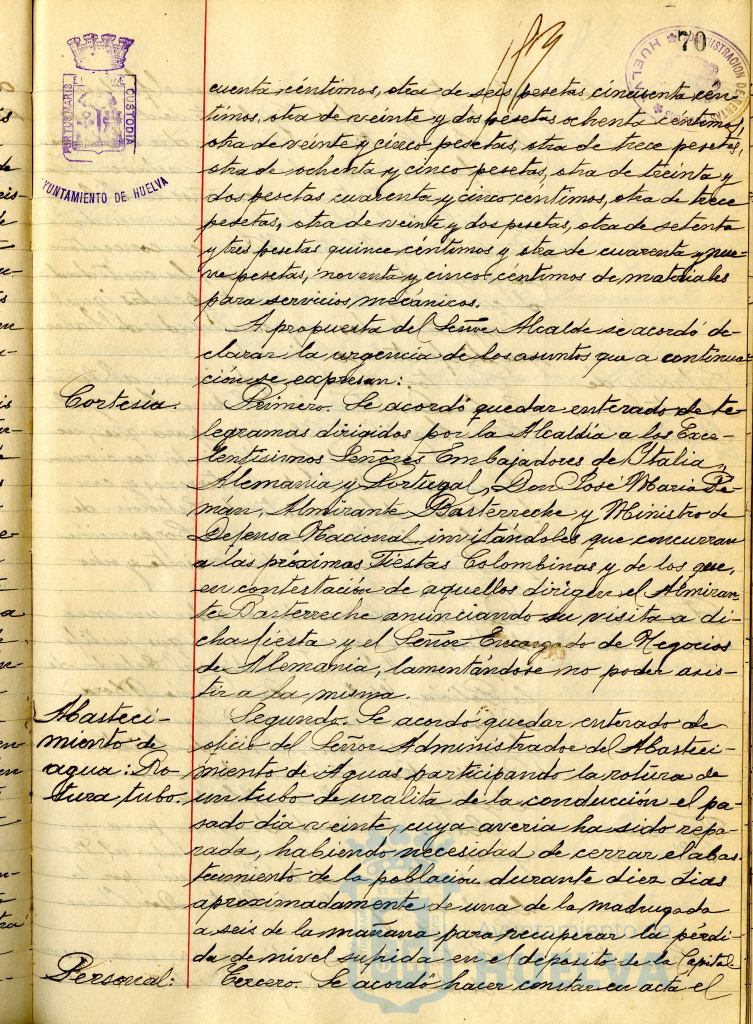 70
ADMINISTRACION DE
HUELVA
PORTUS MARIS
CUSTODIA
AYUNTAMIENTO DE HUELVA
cuenta céntimos, otra de seis pesetas cincuenta cén-
timos, otra de veinte y dos pesetas ochenta céntimos,
otra de veinte y cinco pesetas, otra de trece pesetas,
otra de ochenta y cinco pesetas, otra de treinta y
dos pesetas cuarenta y cinco céntimos, otra de trece
pesetas, otra de veinte y dos pesetas, otra de setenta
y tres pesetas quince céntimos y otra de cuarenta y nue-
ve pesetas, noventa y cinco céntimos de materiales
para servicios mecánicos.
A propuesta del Señor Alcalde se acordó de-
clarar la urgencia de los asuntos que a continua-
ción se expresan:
Cortesía.
Primero. Se acordó quedar enterado de te-
legramas dirigidos por la Alcaldía a los Exce-
lentísimos Señores Embajadores de Italia,
Alemania y Portugal, Don José María Pe-
mán, Almirante Basterreche y Ministro de
Defensa Nacional, invitándoles que concurran
a las próximas Fiestas Colombinas y de los que,
en contestación de aquellos dirigen el Almiran-
te Basterreche anunciando su visita a di-
cha fiesta y el Señor Encargado de Negocios
de Alemania, lamentándose no poder asis-
tir a la misma.
Abasteci-
miento de
agua: Ro-
tura tubo.
Segundo. Se acordó quedar enterado de
oficio del Señor Administrador del Abasteci-
miento de Aguas participando la rotura de
un tubo de uralita de la conducción el pa-
sado dia veinte, cuya averia ha sido repa-
rada, habiendo necesidad de cerrar el abas-
tecimiento de la población durante diez dias
aproximadamente de una de la madrugada
a seis de la mañana para recuperar la pérdi-
da de nivel sufrida en el depósito de la Capital
Personal:
Tercero. Se acordó hacer constar en acta el
HUELVA